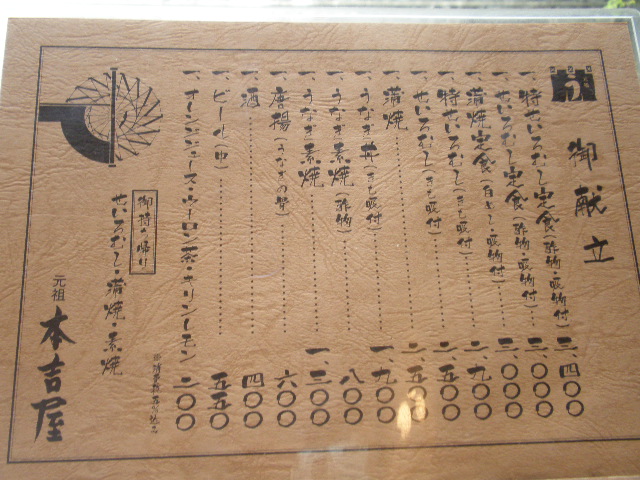 御献立
一、特せいろむし定食(酢物・吸物付)三、四〇〇
一、せいろむし定食(酢物・吸物付)三、〇〇〇
一、蒲焼定食(白めし・吸物付)三、〇〇〇
一、特せいろむし(きも吸付)二、九〇〇
一、せいろむし(きも吸付)二、五〇〇
一、蒲焼 二、
一、うなぎ丼(きも吸付)一、九〇〇
一、うなぎ素焼(酢物)八〇〇
一、うなぎ素焼 一、三〇〇
一、唐揚(うなぎの骨)六〇〇
一、酒 四〇〇
一、ビール(中)五五〇
一、オレンジジュース・ウーロン茶・キリンレモン 二〇〇
御持ち帰り
せいろむし・蒲焼・素焼
元祖
本吉屋